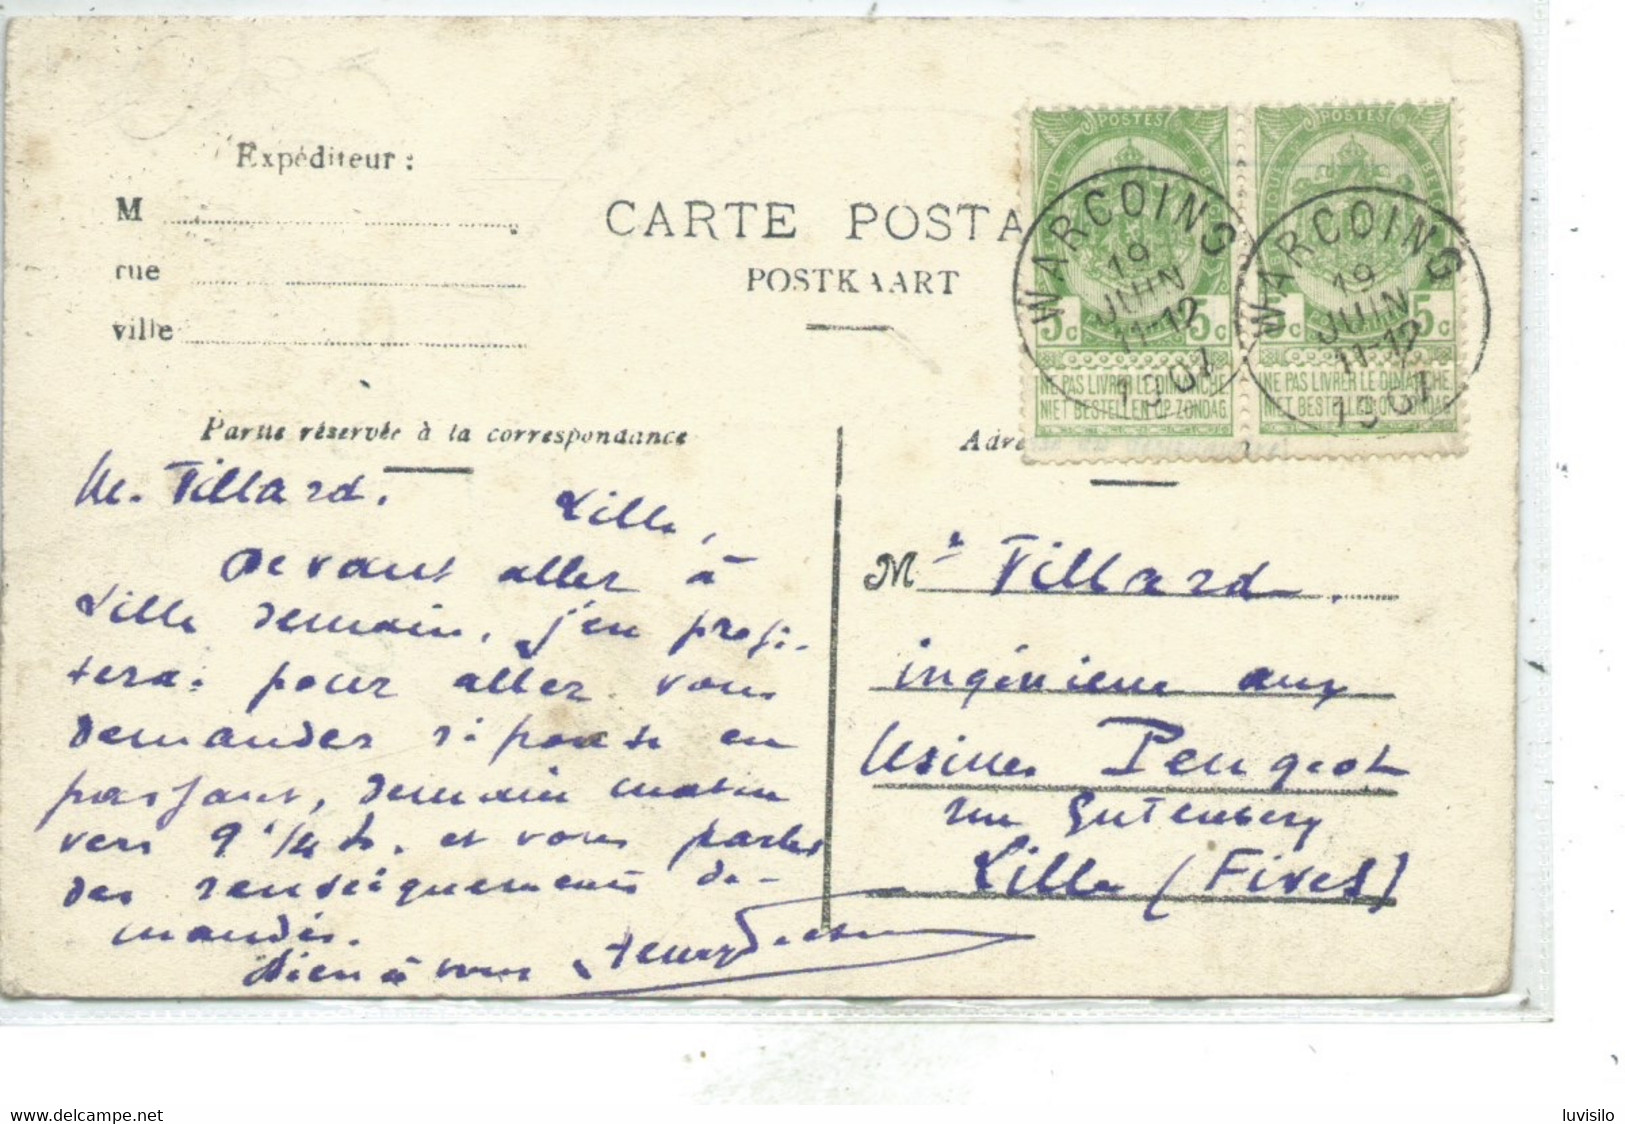 Expéditeur :
M
rue
ville
CARTE POSTA
POSTKAART
POSTES
POSTES
5c 5c
5c 5c
NE PAS LIVRER LE DIMANCHE
NIET BESTELLEN OP ZONDAG
NE PAS LIVRER LE DIMANCHE
NIET BESTELLEN OP ZONDAG
WARCOING
19
JUIN
11-12
1907
WARCOING
19
JUIN
11-12
1907
Partie réservée à la correspondance
Adre
M. Tillard.
Lille,
Devant aller à
Lille demain, j'en profi-
terai pour aller vous
demander réponse en
passant, demain matin
vers 9 1/4 h. et vous parler
des renseignements de-
mandés.
Bien à vous Henry
Mr Tillard.
ingénieur aux
Usines Peugeot
rue Gutenberg
Lille (Fives)
www.delcampe.net
luvisilo